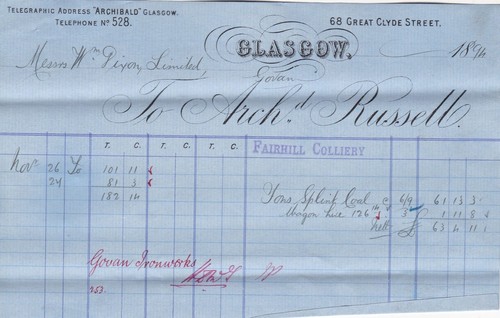 TELEGRAPHIC ADDRESS "ARCHIBALD" GLASGOW.
TELEPHONE No 528.
68 GREAT CLYDE STREET.
GLASGOW, 189
Messrs Wm Dixon, Limited,
Govan
To Archd Russell.
T. C. T. C. T. C. FAIRHILL COLLIERY
Nov 26 To 101 11
81 3
182 14 Tons Splint Coal @ 6/9 61 13 3
Wagon hire 126 3 1 11 8
Nett £ 63 4 11
Govan Ironworks
253